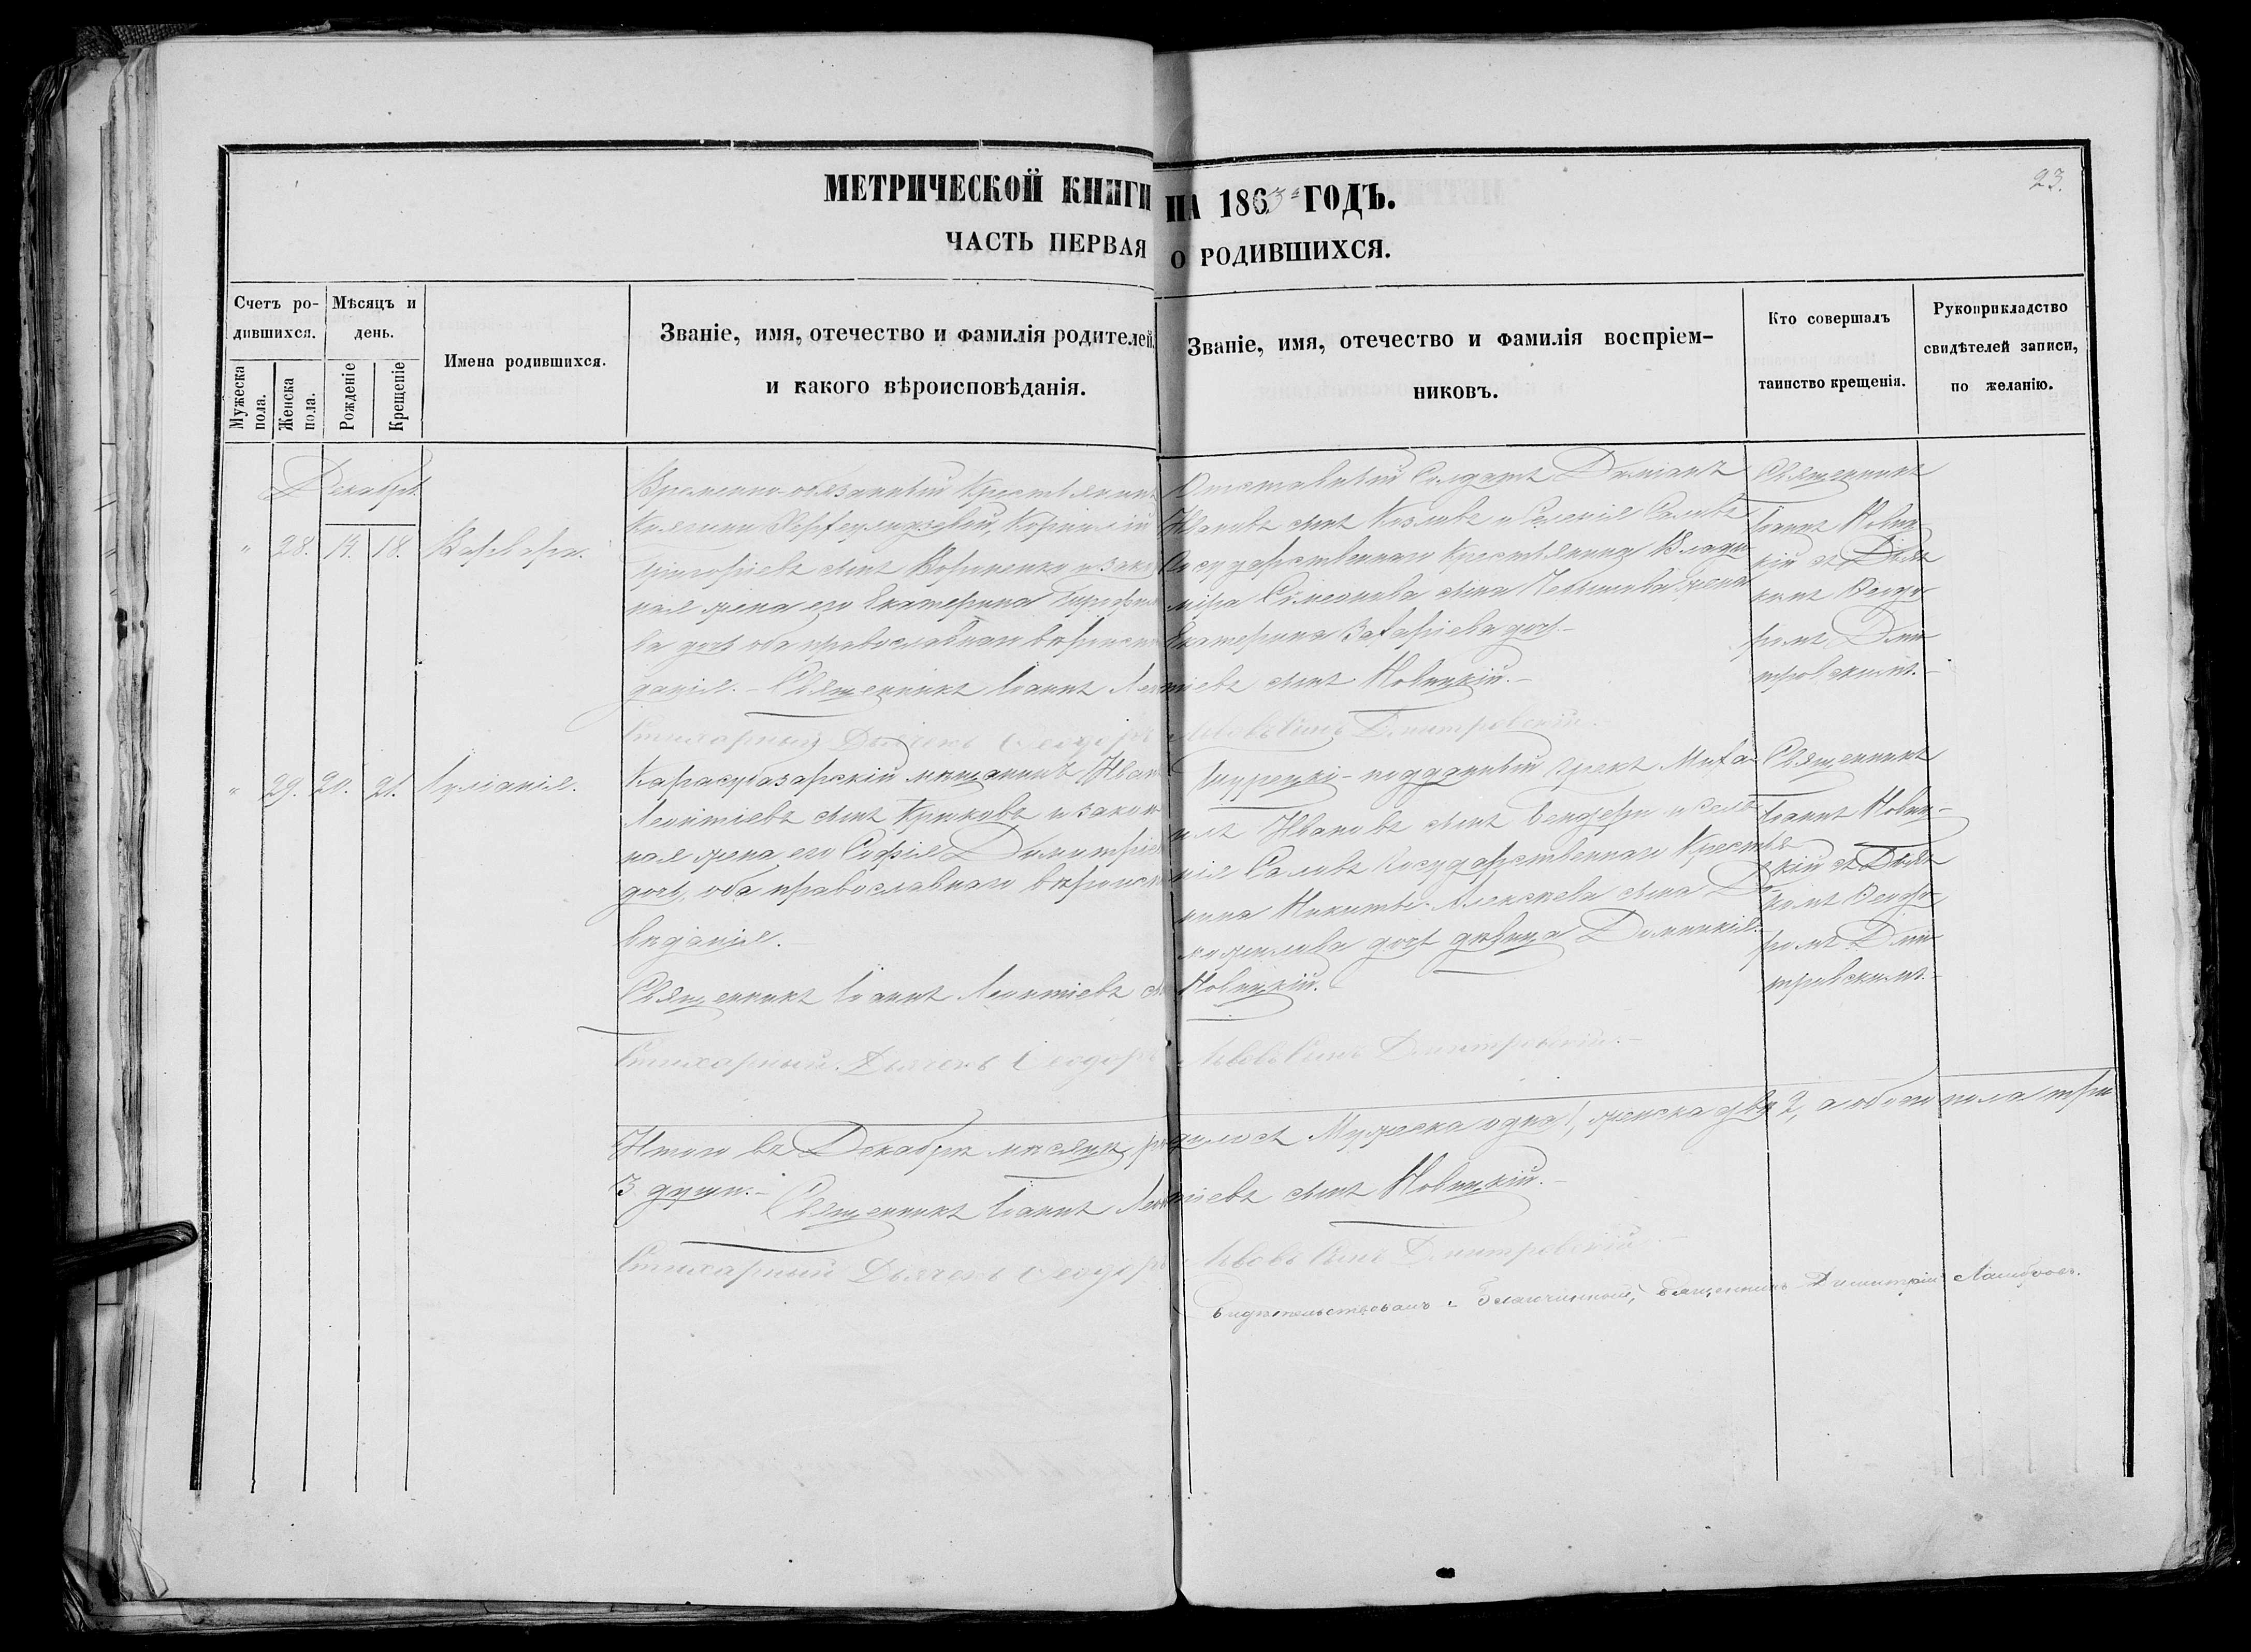 23.
МЕТРИЧЕСКОЙ КНИГИ НА 1863й ГОДЪ.
ЧАСТЬ ПЕРВАЯ О РОДИВШИХСЯ.
Счетъ ро-
дившихся.
Мужеска пола.
Женска пола.
Мѣсяцъ и
день.
Рожденіе
Крещеніе
Имена родившихся.
Званіе, имя, отечество и фамилія родителей,
и какого вѣроисповѣданія.
Званіе, имя, отечество и фамилія воспріем-
никовъ.
Кто совершалъ
таинство крещенія.
Рукоприкладство
свидѣтелей записи,
по желанію.
Декабрь
" 28. 18. Варвара.
Временно-обязанный Крестьянинъ
Княгини Корнилій
Григорієвъ сынъ и закон
ная жена его Екатерина
ва дочь оба православнаго вѣроиспо
данія. – Священникъ Іоаннъ Леонтіевъ сынъ Новицкій. –
Стихарный Дьячекъ Ѳеодоръ Львовъ Сынъ Дмитровскій. –
Отставный Солдатъ Даміанъ
Ивановъ сынъ Козловъ и Селенія Салы
Государственнаго Крестьянина Влади
міра Симеонова сына жена
Екатерина Захаріева дочь. –
Священникъ
Іоаннъ Новиц
кій съ Дьяч
комъ Ѳеодо
ромъ Дми
тровскимъ. –
" 29. 20. 21. Іуліанія.
Карасубазарскій мѣщанинъ Иванъ
Леонтіевъ сынъ Крюковъ и закон
ная жена его Софія Димитріев
дочь, оба православнаго вѣроиспо
вѣданія.
Священникъ Іоаннъ Леонтіевъ сынъ Новицкій.
Стихарный Дьячекъ Ѳеодоръ Львовъ Сынъ Дмитровскій. –
Турецко-подданный Грекъ Миха
илъ Ивановъ сынъ и Селе
нія Салы Государственнаго Крестья
нина Никиты Алексѣева сына До
дочь дѣвица Домникія. –
Священникъ
Іоаннъ Новиц-
кій съ Дьяч
комъ Ѳеодо
ромъ Дми
тровскимъ. –
Итого въ Декабрѣ мѣсяцѣ родилось Мужеска одна 1, женска двѣ 2, а обоего пола три
3 души. –
Священникъ Іоаннъ Леонтіевъ сынъ Новицкій. –
Стихарный Дьячекъ Ѳеодоръ Львовъ Сынъ Дмитровскій
Свидѣтельствовалъ: Благочинный, Священникъ Димитрій